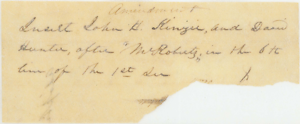 Amendment
Insert John H. Kinzie, and David
Hunter, after "McRoberts, in the 6th
line of the 1st Sec